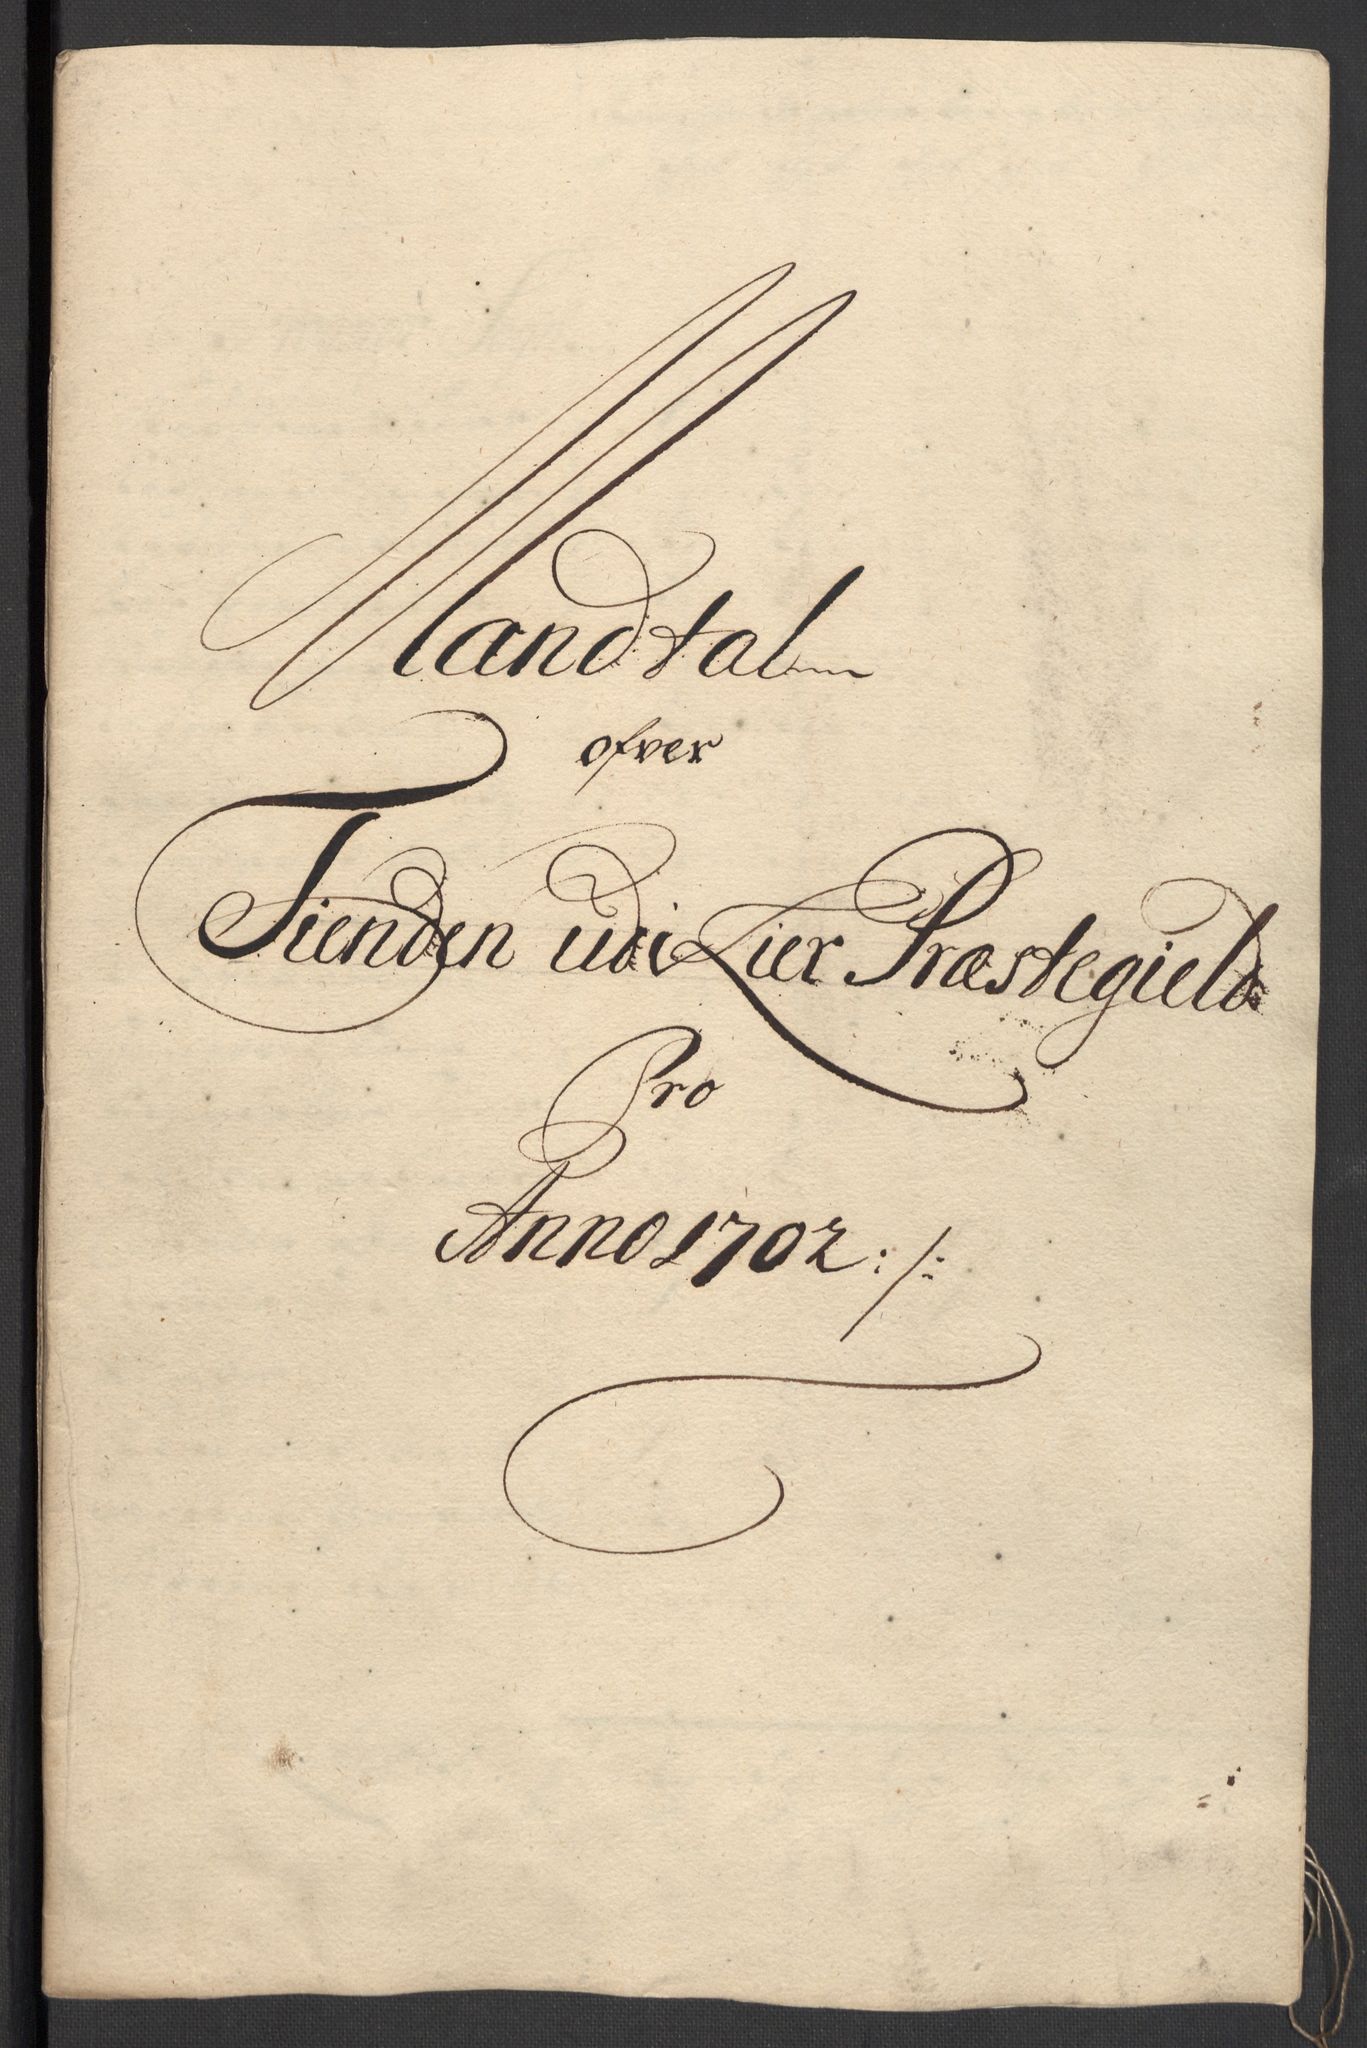 Mandtal
ofver
Tienden udi Lier Præstegield
Pro
Anno 1702 :/: